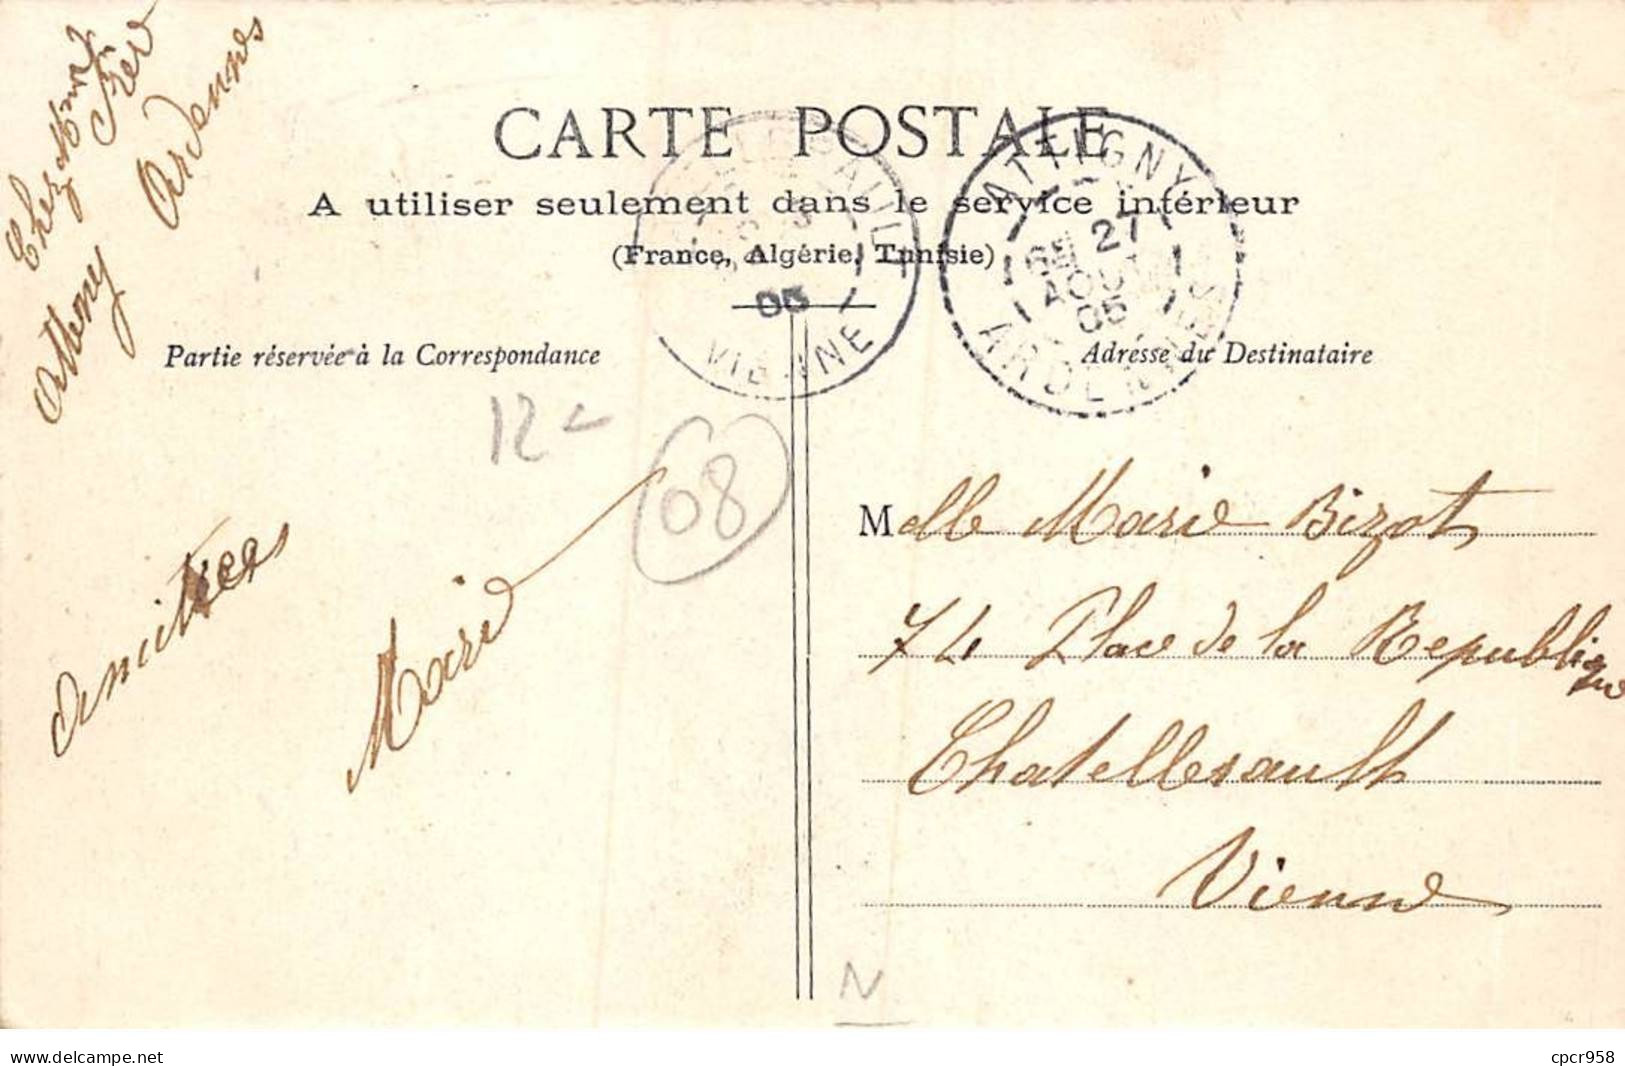 Chez Mme
Frère
Athony Ardennes
CARTE POSTALE
A utiliser seulement dans le service intérieur
(France, Algérie, Tunisie)
Partie réservée à la Correspondance
Adresse du Destinataire
VIENNE
05
ATTIGNY
27
AOUT
05
ARDENNES
12-
08
amitiées
Marie
Melle Marie Bizot
74 Place de la Republique
Chatellerault
Vienne
N
delcampe.net
cpcr958